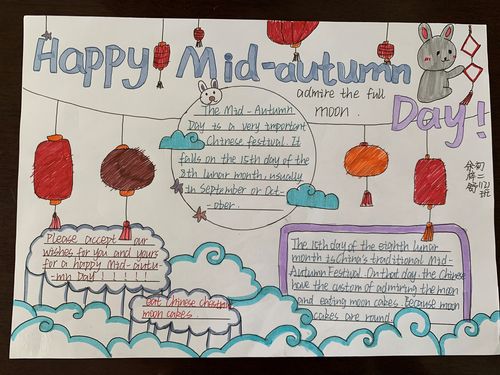 Happy Mid-autumn
Day!
admire the full
moon.
The Mid-Autumn
Day is a very important
Chinese festival. It
falls on the 15th day of the
8th lunar month, usually
in September or Oct-
ober.
Please accept our
wishes for you and yours
for a happy Mid-autu-
mn Day!!!!
eat Chinese
moon cakes.
The 15th day of the eighth lunar
month is China's traditional Mid-
Autumn Festival. On that day, the Chinese
have the custom of admiring the moon
and eating moon cakes. Because moon
cakes are round.